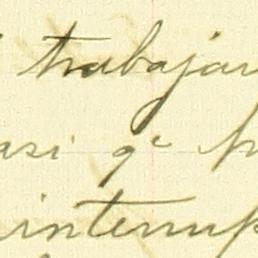 trabajan
asi qe p
interrup